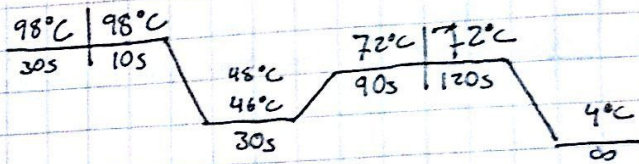 98°C | 98°C
30s | 10s
48°C
46°C
30s
72°C | 72°C
90s | 120s
4°C
∞